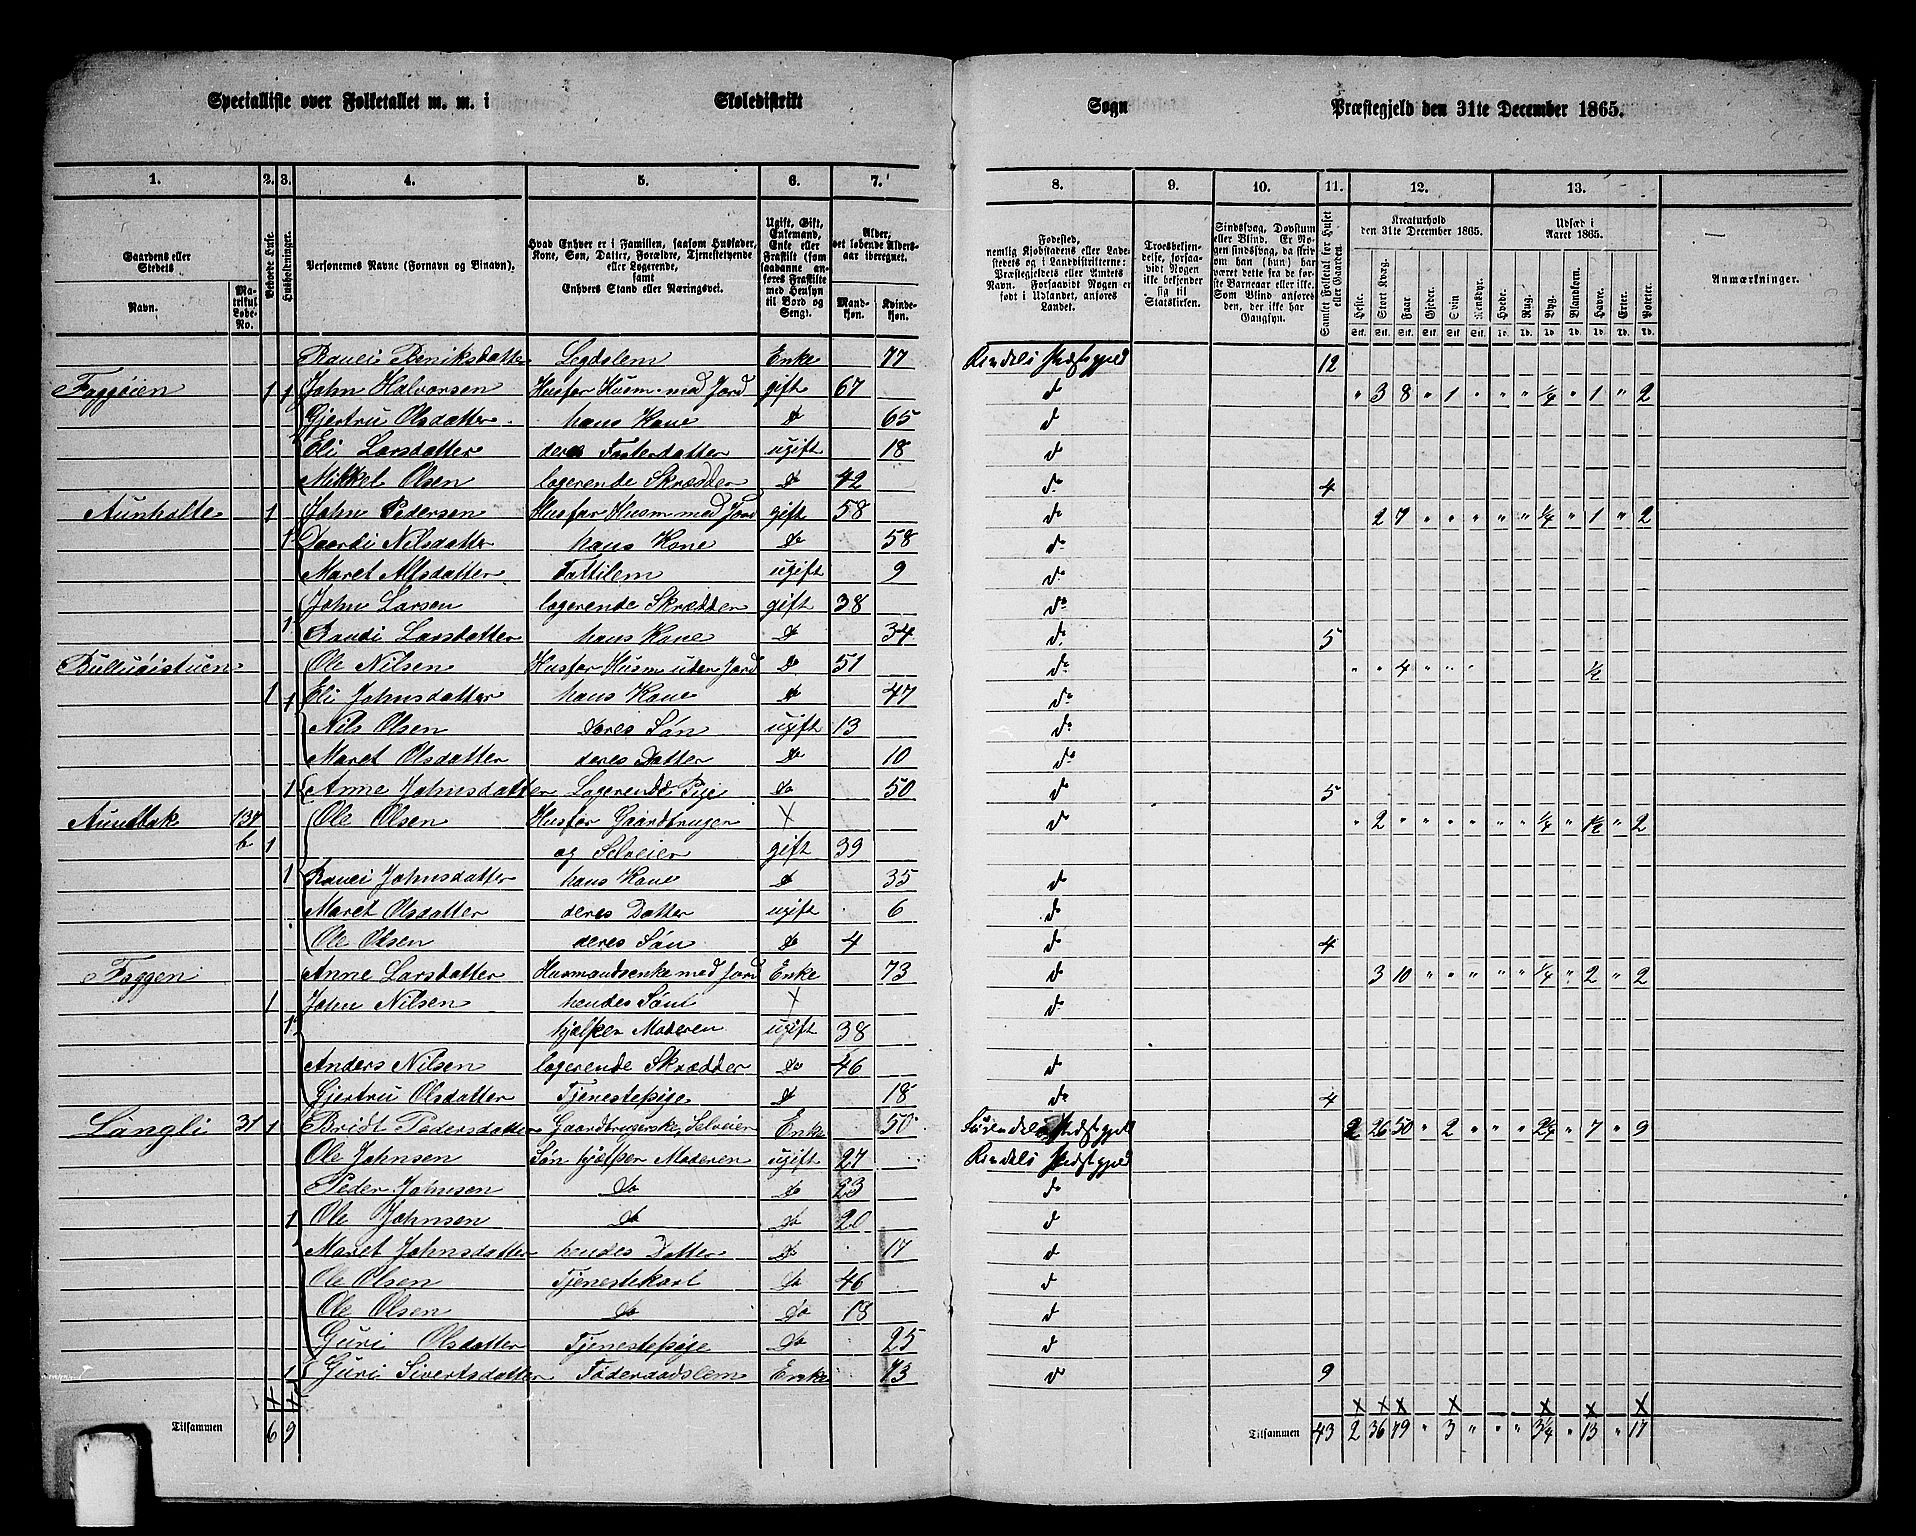 Specialliste over Folketallet m. m. i Skoledistrikt Sogn Præstegjeld den 31te December 1865.
1. 2. 3. 4. 5. 6. 7. 8. 9. 10. 11. 12. 13.
Gaardens eller Stedets
Navn.
Matrikul Løbe-No.
Beboede Huse.
Husholdninger.
Personernes Navne (Fornavn og Binavn).
Hvad Enhver er i Familien, saasom Husfader, Kone, Søn, Datter, Forældre, Tjenestetyende eller Logerende, samt Enhvers Stand eller Næringsvei.
Ugift, Gift, Enkemand, Enke eller Fraskilt (som saadanne anføres Fraskilte med Hensyn til Bord og Seng).
Alder, det løbende Alders-aar iberegnet.
Mandkjøn. Kvindekjøn.
Fødested, nemlig Kjøbstadens eller Ladestedets og i Landdistrikterne: Præstegjeldets eller Amtets Navn. Forsaavidt Nogen er født i Udlandet, anføres Landet.
Troesbekjendelse, forsaavidt Nogen ikke bekjender sig til Statskirken.
Sindssvag, Døvstum eller Blind. Er Nogen sindssvag, da skrives om han (hun) har været dette fra de første Barneaar eller ikke. Som Blind anføres den, der ikke har Gangsyn.
Samlet Folketal for Huset eller Gaarden
Kreaturhold den 31te December 1865.
Heste. Stort Kvæg. Faar. Gjeder. Svin. Rensdyr.
Udsæd i Aaret 1865.
Hvede. Rug. Byg. Blandkorn. Havre. Erter. Poteter.
Anmærkninger.
Beniksdatter Legdelem Enke 77 Rindals Præstgjeld 12
Faggøien 1 1 John Halvorsen Husfar Husm. med Jord gift 67 d " 3 8 " 1 " " " ¼ " 1 " 2
Gjertru Olsdatter hans Kone do 65 d
Eli Larsdatter deres Fosterdatter ugift 18 d
Mikkel Olsen logerende Skrædder do 42 do 4
Aunholte 1 John Pedersen Husfar Husm med Jord gift 58 do 2 7 " " " " " ¼ " 1 " 2
1 Nilsdatter hans Kone do 58 do
Maret Alfsdatter Fattilem ugift 9 do
John Larsen logerende Skrædder gift 38 do
1 Randi Larsdatter hans Kone do 34 do 5
Ole Nilsen Husfar Husm uden Jord do 51 do " " 4 " " " ½
1 1 Eli Johnsdatter hans Kone do 47 do
Nils Olsen deres Søn ugift 13 do
Maret Olsdatter deres Datter do 10 do
1 Anne Johnsdatter Logerende Pige do 50 do 5
134 Ole Olsen Husfar Gaardbruger X do " 2 " " " " " " ¼ " 1½ " 2
b 1 og Selveier gift 39
1 Johnsdatter hans Kone do 35 d
Maret Olsdatter deres Datter ugift 6 d
Ole Olsen deres Søn do 4 d 4
Faggen Anne Larsdatter Husmandsenke med Jord Enke 73 d 3 10 " " " " " ¼ " 2 " 2
1 John Nilsen hendes Søn X d
1 hjælper Moderen ugift 38
Anders Nilsen logerende Skrædder do 46 d
Gjertru Olsdatter Tjenestepige do 18 do 4
Langli 31 1 Bridt Pedersdatter Gaardbrugerske, Selveier Enke 50 Surendals Præstgjeld 2 26 50 " 2 " " " 2¼ " 7 " 9
Ole Johnsen Søn hjælper Moderen ugift 27 Rindals Præstgjeld
Peder Johnsen do do 23 d
1 Ole Johnsen do do 20 d
Maret Johnsdatter hendes Datter do 17 d
Ole Olsen Tjenestekarl do 46 d
Ole Olsen do do 18 d
Guri Olsdatter Tjenestepige do 25 d
1 Guri Sivertsdatter Føderaadslem Enke 73 d 9
Tilsammen 6 9 Tilsammen 43 2 36 79 " 3 " " " 3¼ " 13 " 17